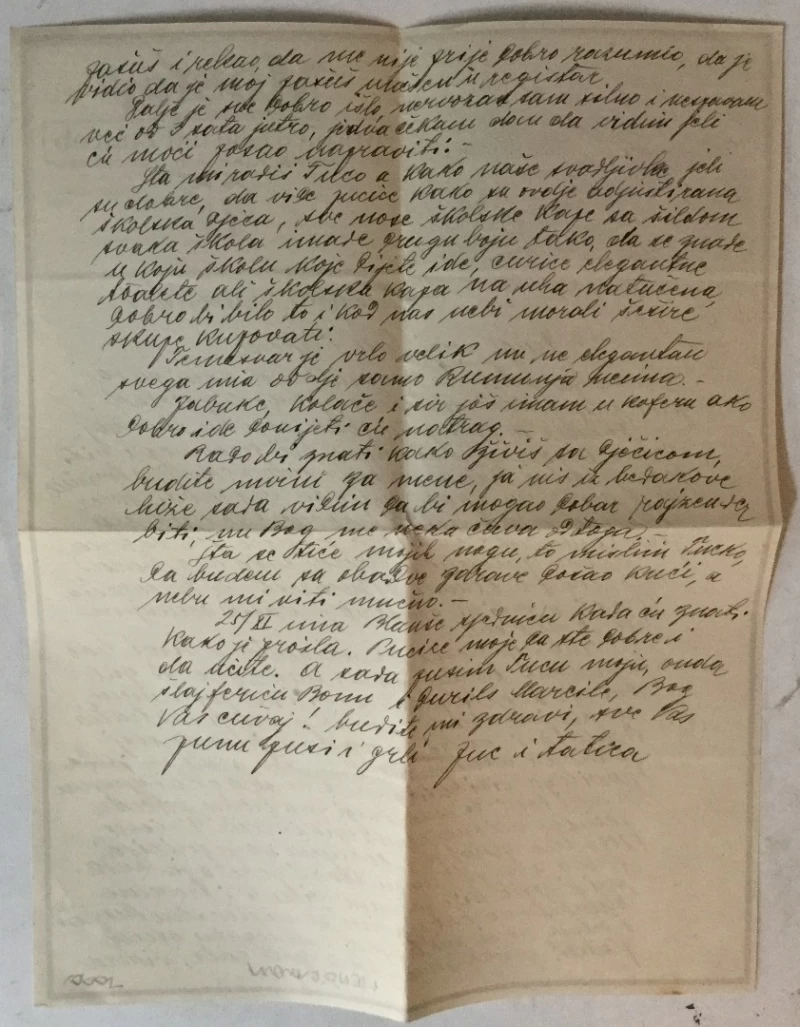 pašuš i rekao, da me nije prije dobro razumio, da je
vidio da je moj pašuš unešen u registar.
Dalje je sve dobro išlo, nervozan sam silno i nespavam
već od 3 sata jutro, jedva čekam dan da vidim jeli
ću moći posao napraviti. –
Šta mi radiš Fuco a kako naše svadljivke, jeli
su dobre, da vide pucice kako su ovdje adjustirana
školska djeca, sve nose školske kape sa šildom
svaka škola imade drugu boju tako, da se znade
u koju školu koje dijete ide, curice elegantne
toalete ali školska kapa na uha natučena,
dobro bi bilo to i kod nas nebi morali šešire
skupe kupovati.
Temesvar je vrlo velik nu ne elegantan
svega ima ovdje samo Rumunja nema. –
Jabuke, kolače i sir još imam u koferu ako
dobro ide donijeti ću natrag. –
Rado bi znati kako živiš sa dječicom,
budite mirni za mene, ja nis iz bedakove
hiže sada vidim da bi mogao dobar
biti, nu Bog me neka čuva od toga.
Šta se tiče mojih nogu, to mislim Fucko,
da budem sa obadve zdrave došao kući, a
nebu mi biti mučno. –
25/XI ima Blanše sjednicu kada ću znati
kako je prošla. Pucice moje da ste dobre i
da učite. A sada pusim Fucu moju, onda
šlajfericu Bonu i Marcile, Bog
Vas čuvaj! budite mi zdravi, sve Vas
puno pusi i grli Fuc i tatica